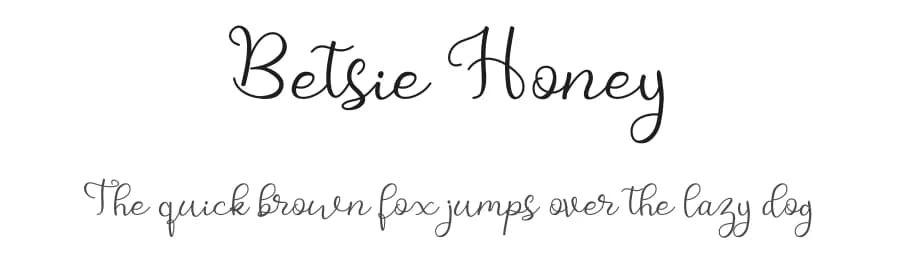 Betsie Honey
The quick brown fox jumps over the lazy dog